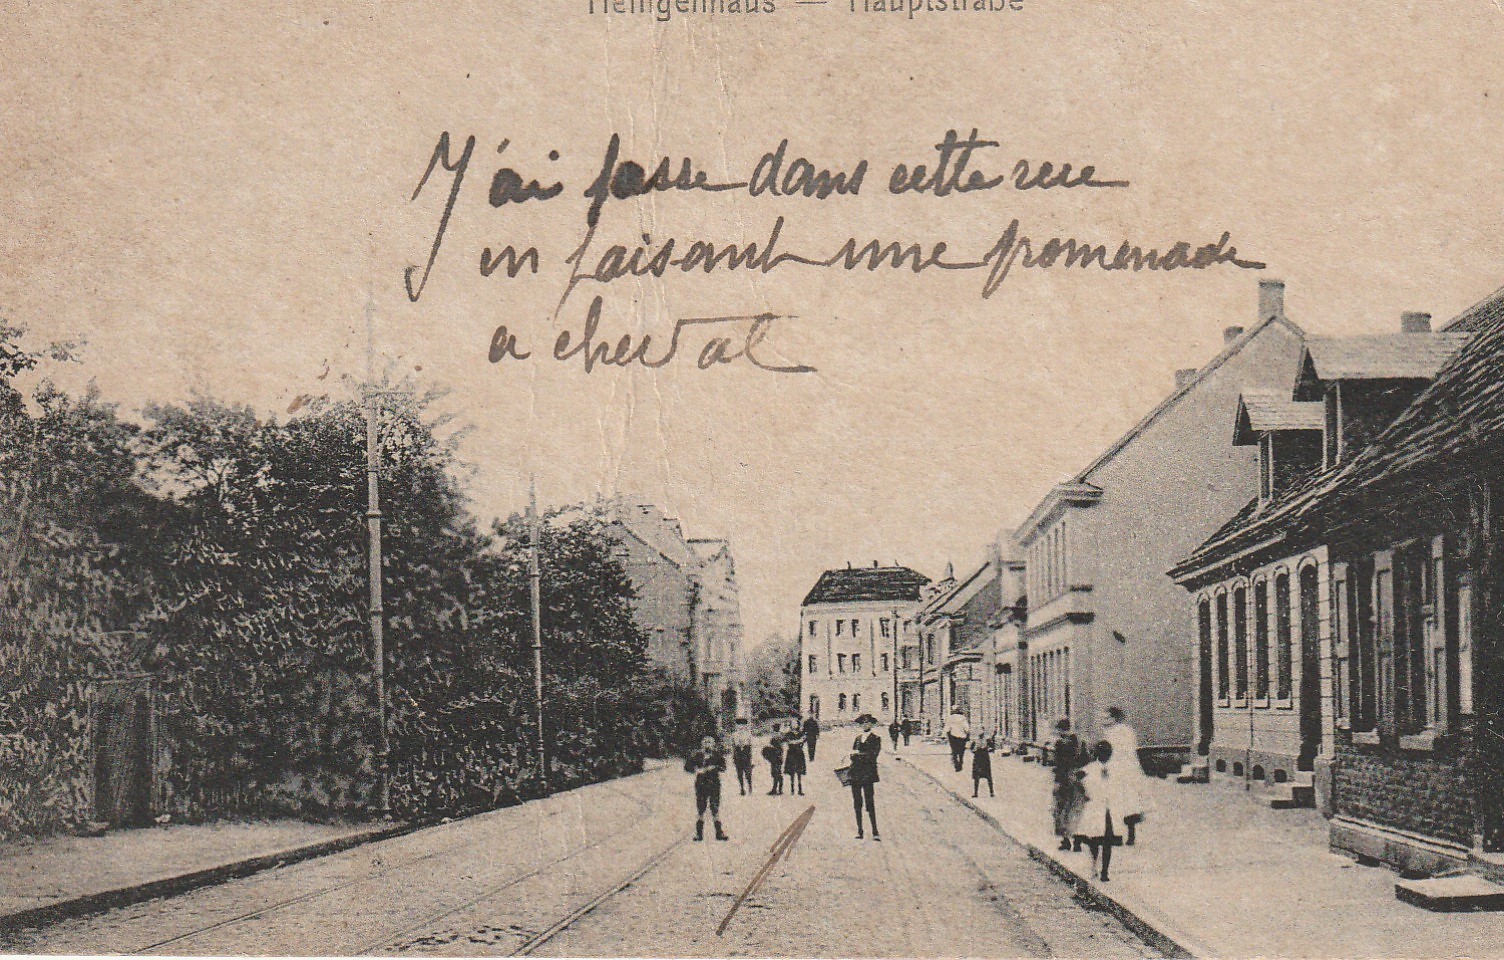 Heiligenhaus — Hauptstraße
J'ai passe dans cette rue
en faisant une promenade
a cheval